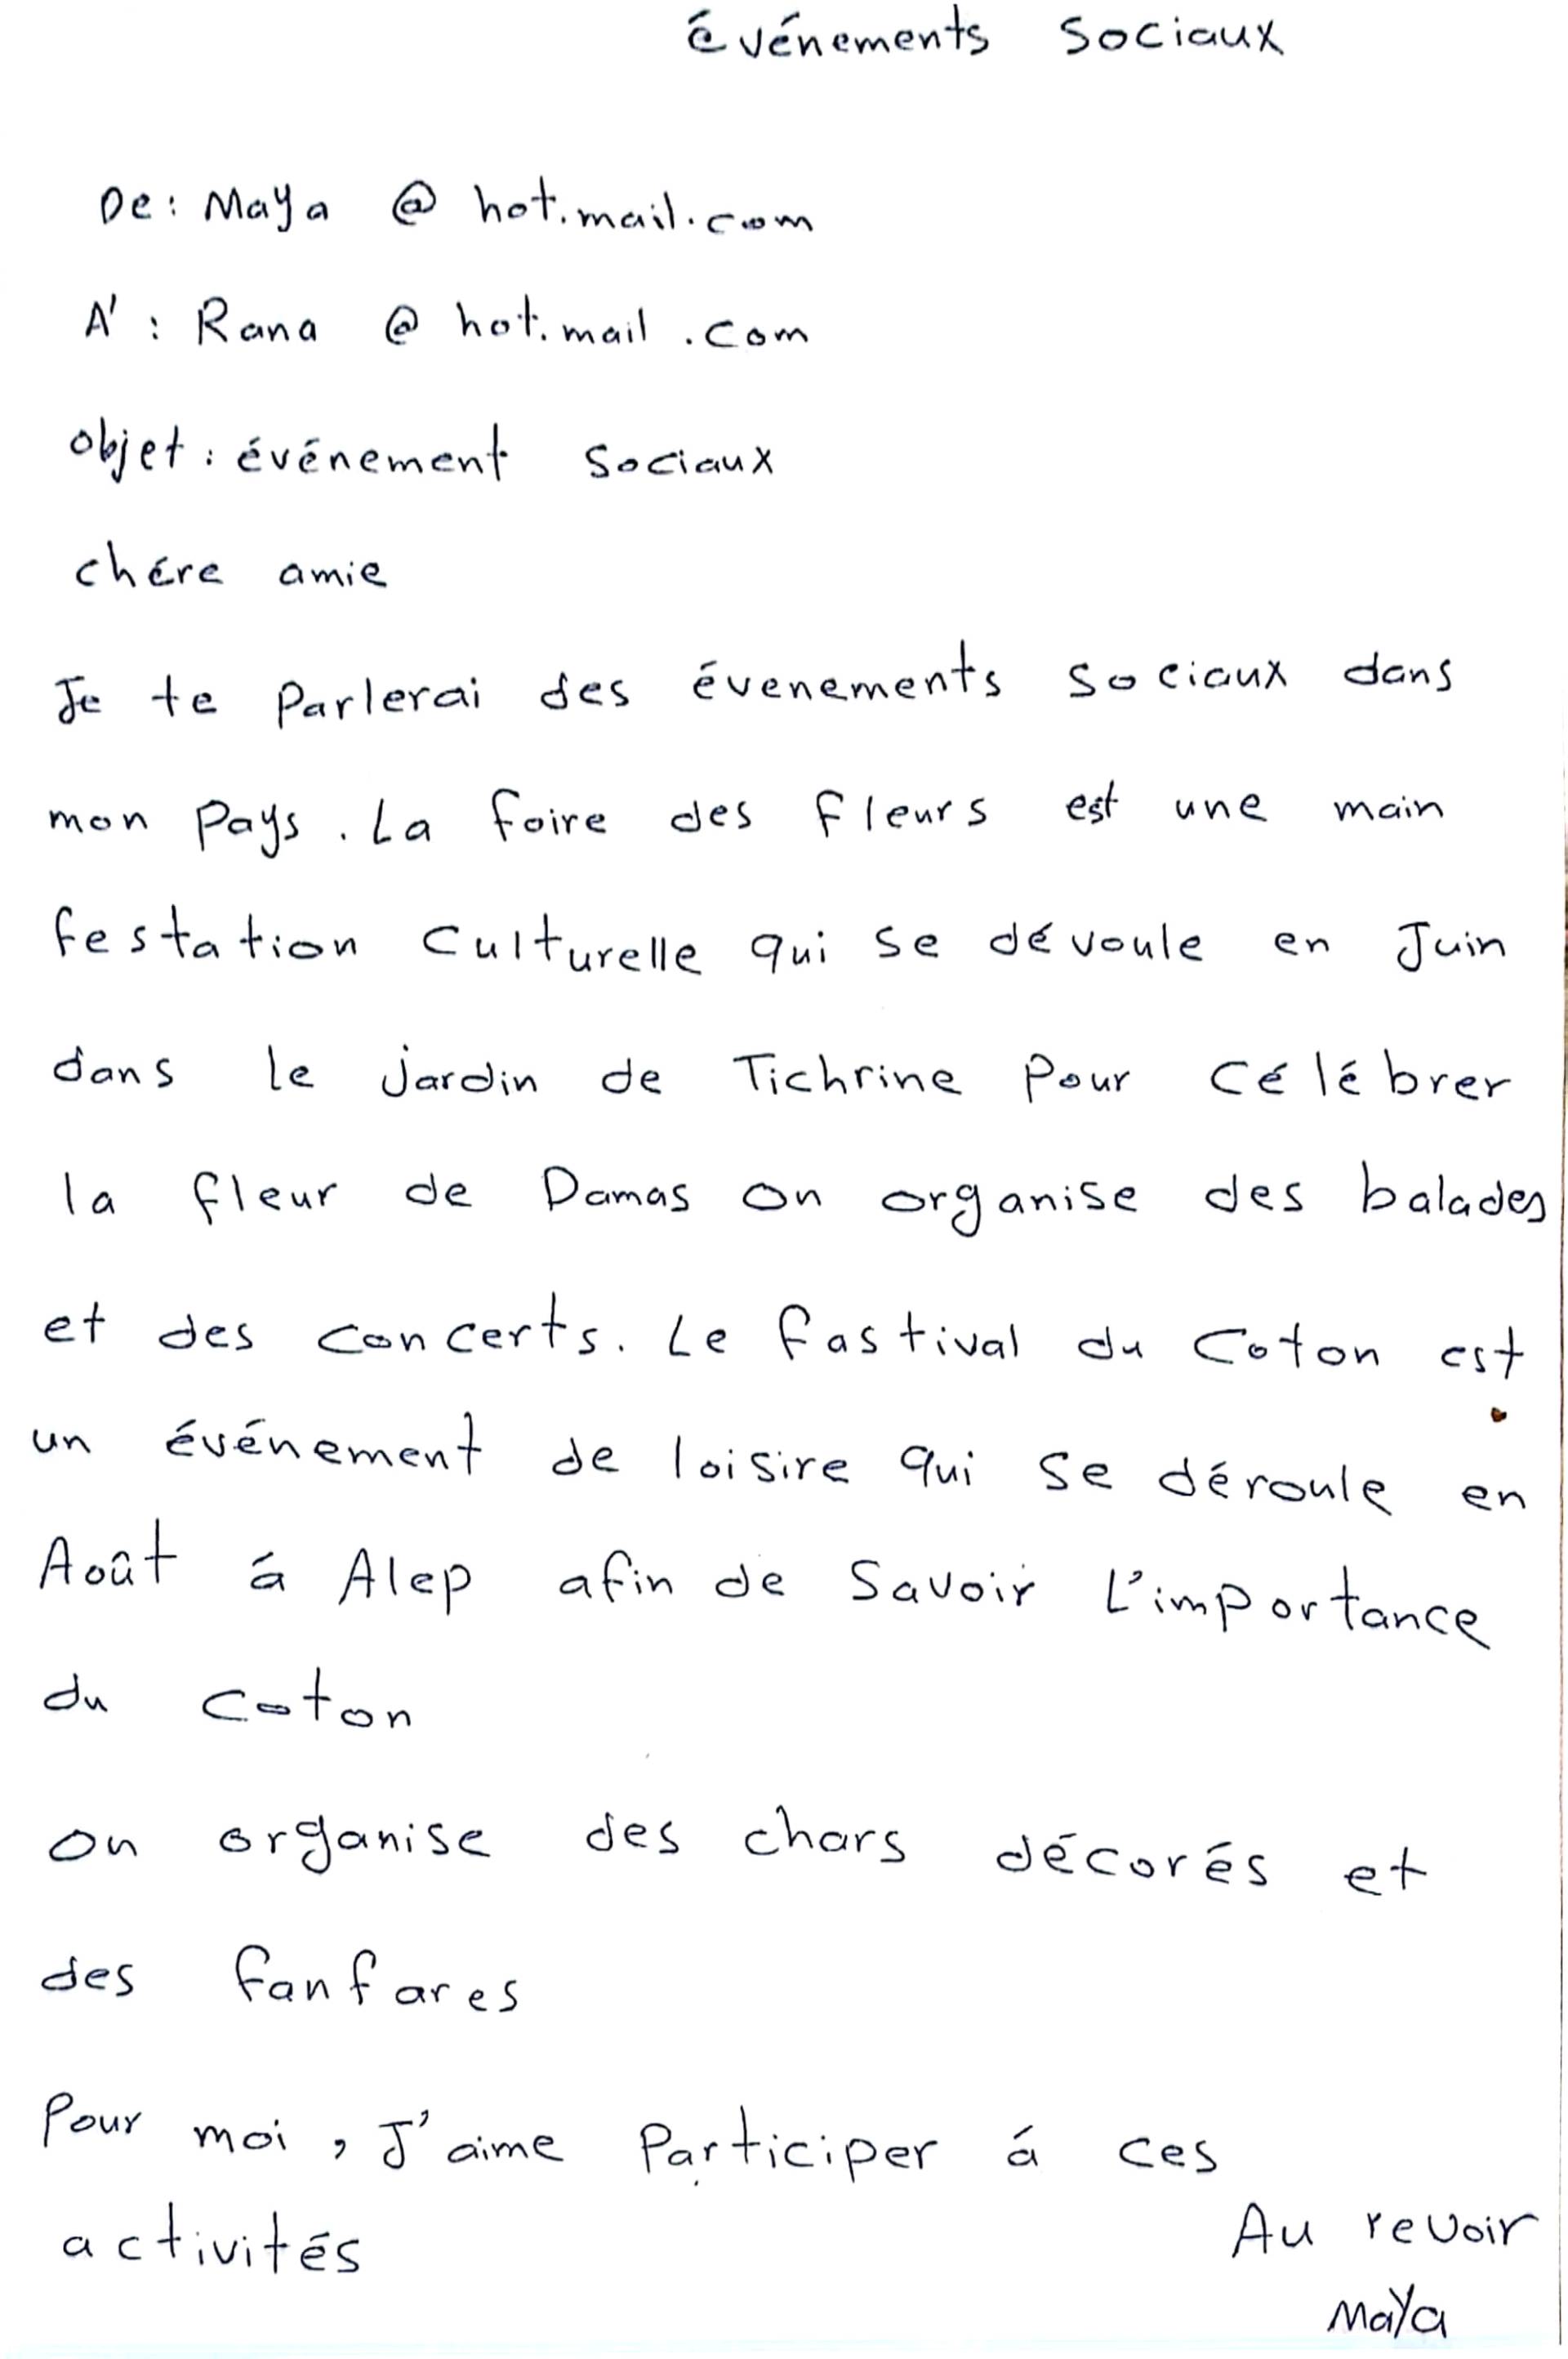 événements sociaux
De: Maya @ hot.mail.com
A' : Rana @ hot.mail .com
objet : événement sociaux
chére amie
Je te Parlerai des évenements sociaux dans
mon Pays . La foire des fleurs est une main
festation Culturelle qui se dévoule en Juin
dans le jardin de Tichrine Pour célébrer
la fleur de Damas on organise des balades
et des concerts. Le fastival du Coton est
un événement de loisire qui se déroule en
Août á Alep afin de Savoir L'importance
du coton
on organise des chars décorés et
des fanfares
Pour moi , J'aime Participer á ces
activités
Au revoir
MaYa